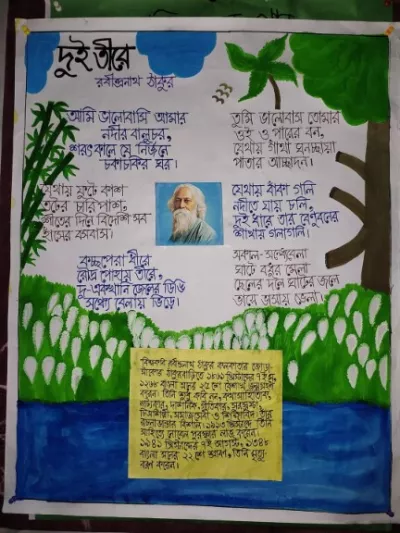 দুই তীরে
রবীন্দ্রনাথ ঠাকুর
আমি ভালোবাসি আমার
নদীর বালুচর,
শরৎকালে যে নির্জনে
চকাচকির ঘর।
যেথায় ফুটে কাশ
তটের চারি পাশ,
শীতের দিনে বিদেশি সব
হাঁসের বসবাস।
কচ্ছপেরা ধীরে
রৌদ্র পোহায় তীরে,
দু-একখানি জেলের ডিঙি
সন্ধে বেলায় ভিড়ে।
তুমি ভালোবাস তোমার
ওই ও পারের বন,
যেথায় গাঁথা ঘনচ্ছায়া
পাতার আচ্ছাদন।
যেথায় বাঁকা গলি
নদীতে যায় চলি,
দুই ধারে তার বেণুবনের
শাখায় গলাগলি।
সকাল-সন্ধেবেলা
ঘাটে বধূর মেলা
ছেলের দলে ঘাটের জলে
ভাসে ভাসায় ভেলা।
বিশ্বকবি রবীন্দ্রনাথ ঠাকুর কলকাতার জোড়া-
সাঁকোর ঠাকুরবাড়িতে ১৮৬১ খ্রিস্টাব্দের ৭ই মে,
১২৬৮ বাংলা সনের ২৫ শে বৈশাখ জন্মগ্রহণ
করেন। তিনি শুধু কবি নন, কথাসাহিত্যিক,
নাট্যকার, দার্শনিক, গীতিকার, সুরস্রষ্টা,
চিত্রশিল্পী, সমাজসেবী ও শিক্ষাবিদ তাঁর
রচনাভান্ডার বিশাল। ১৯১৩ খ্রিস্টাব্দে তিনি
সাহিত্যে নোবেল পুরস্কার লাভ করেন।
১৯৪১ খ্রিস্টাব্দের ৭ই আগস্ট, ১৩৪৮
বাংলা সনের ২২ শে শ্রাবণ, তিনি মৃত্যু
বরণ করেন।